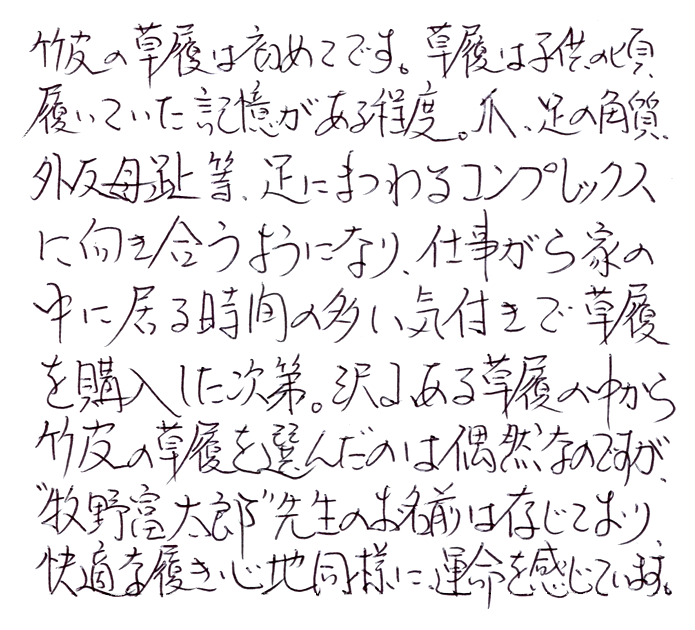 竹皮の草履は初めてです。草履は子供の頃、
履いていた記憶がある程度。爪、足の角質、
外反母趾等、足にまつわるコンプレックス
に向き合うようになり、仕事がら家の
中に居る時間の多い気付きで草履
を購入した次第。沢山ある草履の中から
竹皮の草履を選んだのは偶然なのですが、
"牧野富太郎"先生のお名前は存じており、
快適な履き心地同様に運命を感じています。